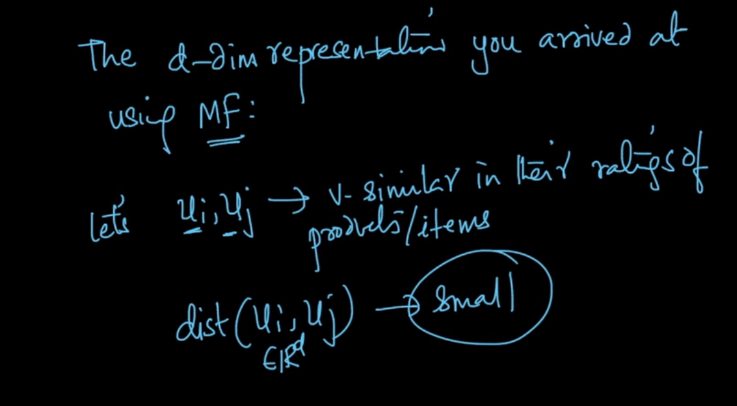 The d-dim representation you arrived at
using MF:
let's ui, uj → v. similar in their ratings of
products/items
dist(ui, uj) → small
∈ℝᵈ